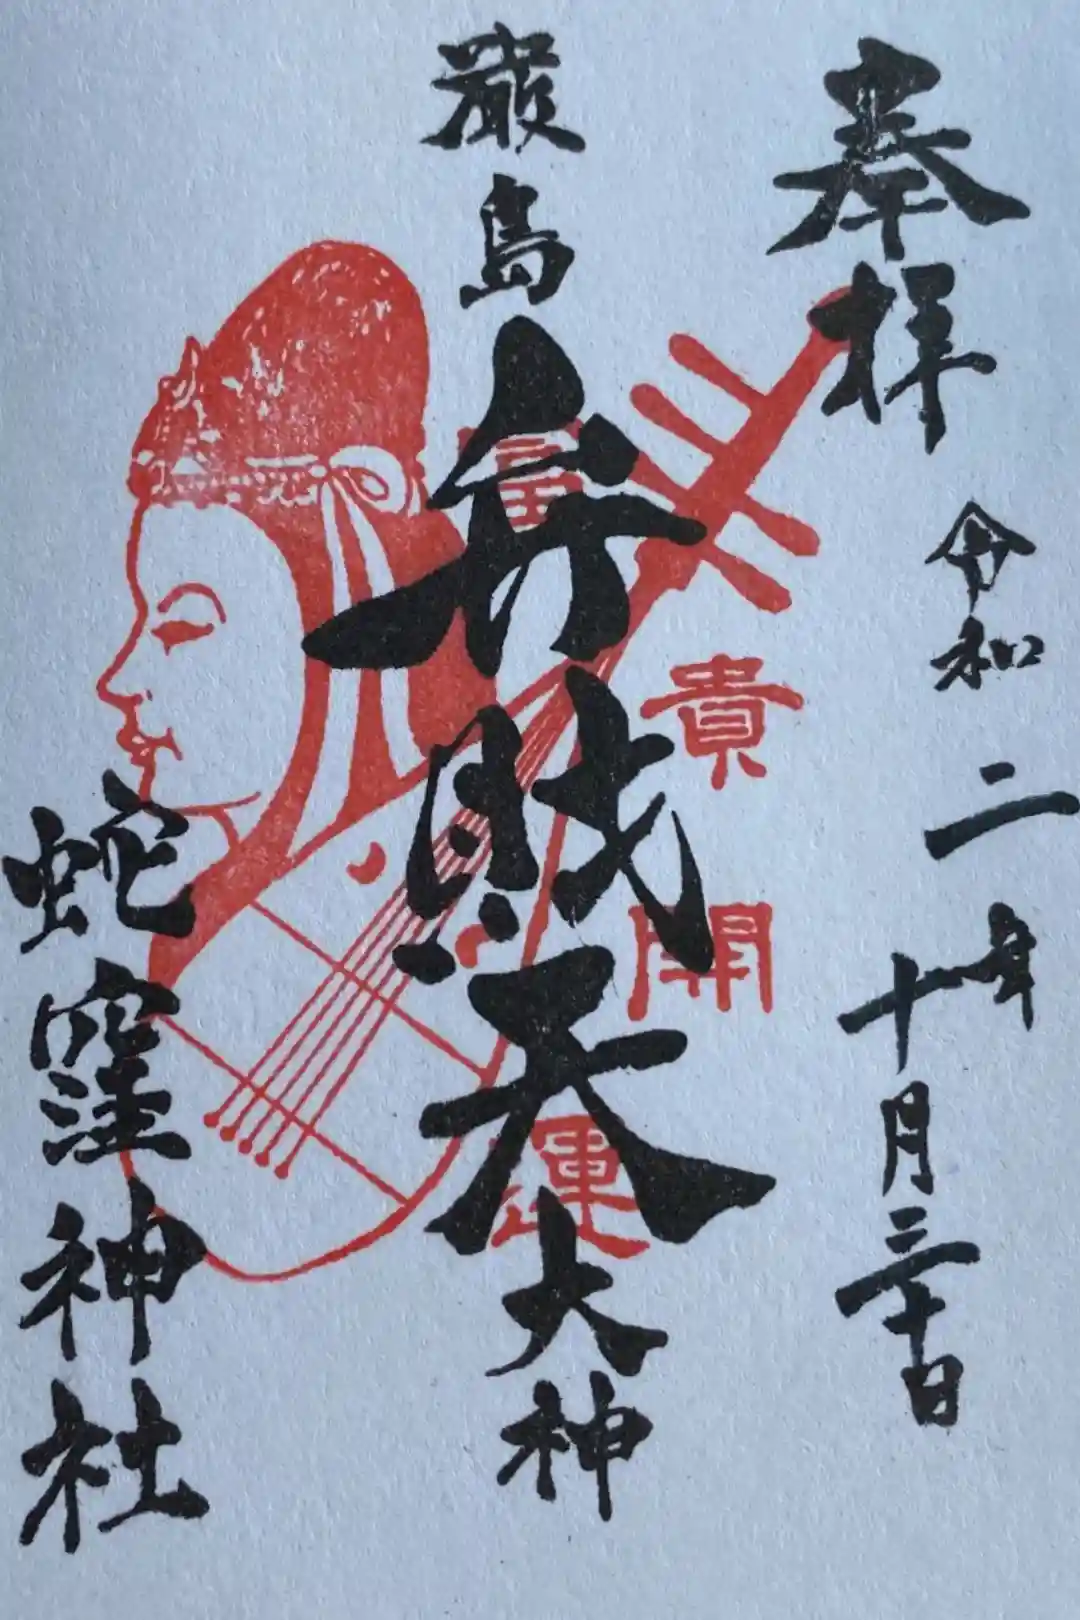 奉拝
令和二年十月三十日
厳島弁財天大神
富貴開運
蛇窪神社